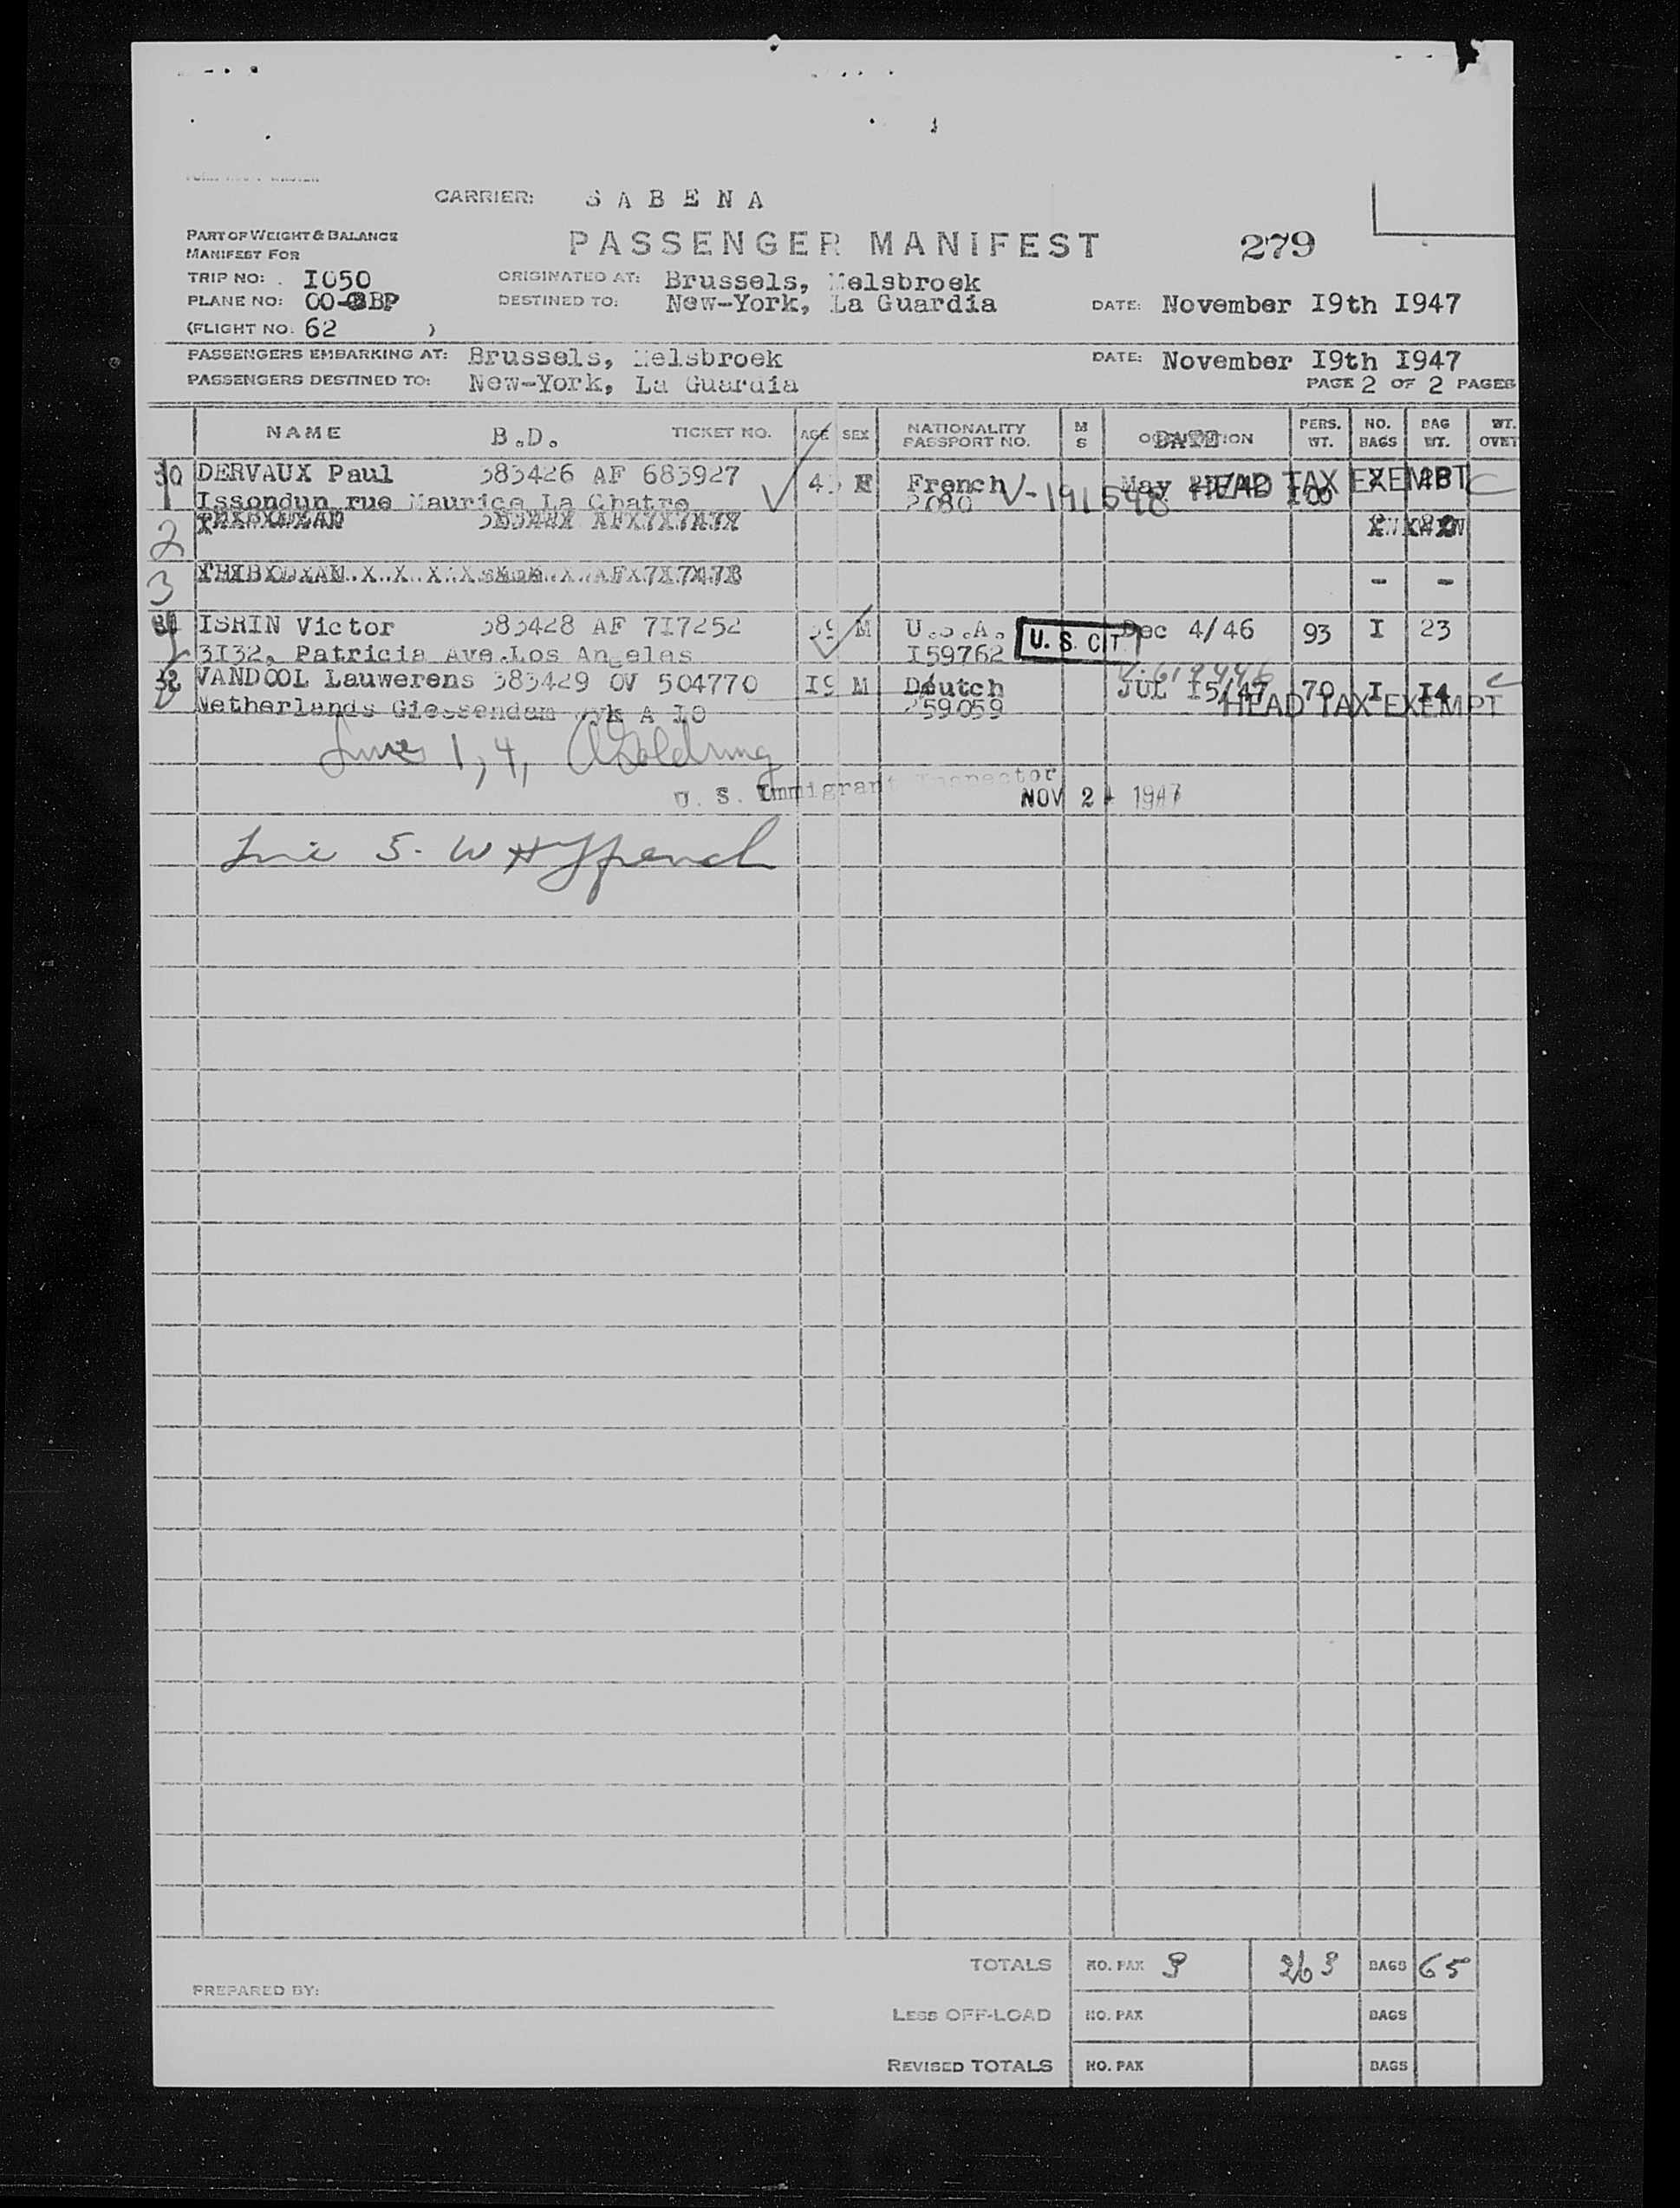 CARRIER: S A B E N A
PART OF WEIGHT & BALANCE
MANIFEST FOR
PASSENGER MANIFEST 279
TRIP NO: I050 ORIGINATED AT: Brussels, Melsbroek
PLANE NO: OO-CBP DESTINED TO: New-York, La Guardia DATE: November I9th I947
(FLIGHT NO. 62 )
PASSENGERS EMBARKING AT: Brussels, Melsbroek DATE: November I9th I947
PASSENGERS DESTINED TO: New-York, La Guardia PAGE 2 OF 2 PAGES
NAME B.D. TICKET NO. AGE SEX NATIONALITY PASSPORT NO. M S DATE PERS. WT. NO. BAGS BAG WT. WT.
30 DERVAUX Paul 383426 AF 683927 French May HEAD TAX EXEMPT
1 Issondun rue Maurice La Chatre V-191548 I00
2
3 - -
ISRIN Victor 383428 AF 7I7252 M U.S.A. U. S. CIT Dec 4/46 93 I 23
3I32, Patricia Ave.Los Angelas I59762
32 VANDOOL Lauwerens 383429 OV 504770 I9 M Deutch JUL I5/47 70 I I4
Netherlands Giessendam wyk A I0 259059 HEAD TAX EXEMPT
Lines 1, 4, Goldring
U. S. Immigrant Inspector
NOV 2 1947
Line 5. W H
TOTALS NO. PAX 3 263 BAGS 65
PREPARED BY:
LESS OFF-LOAD NO. PAX BAGS
REVISED TOTALS NO. PAX BAGS